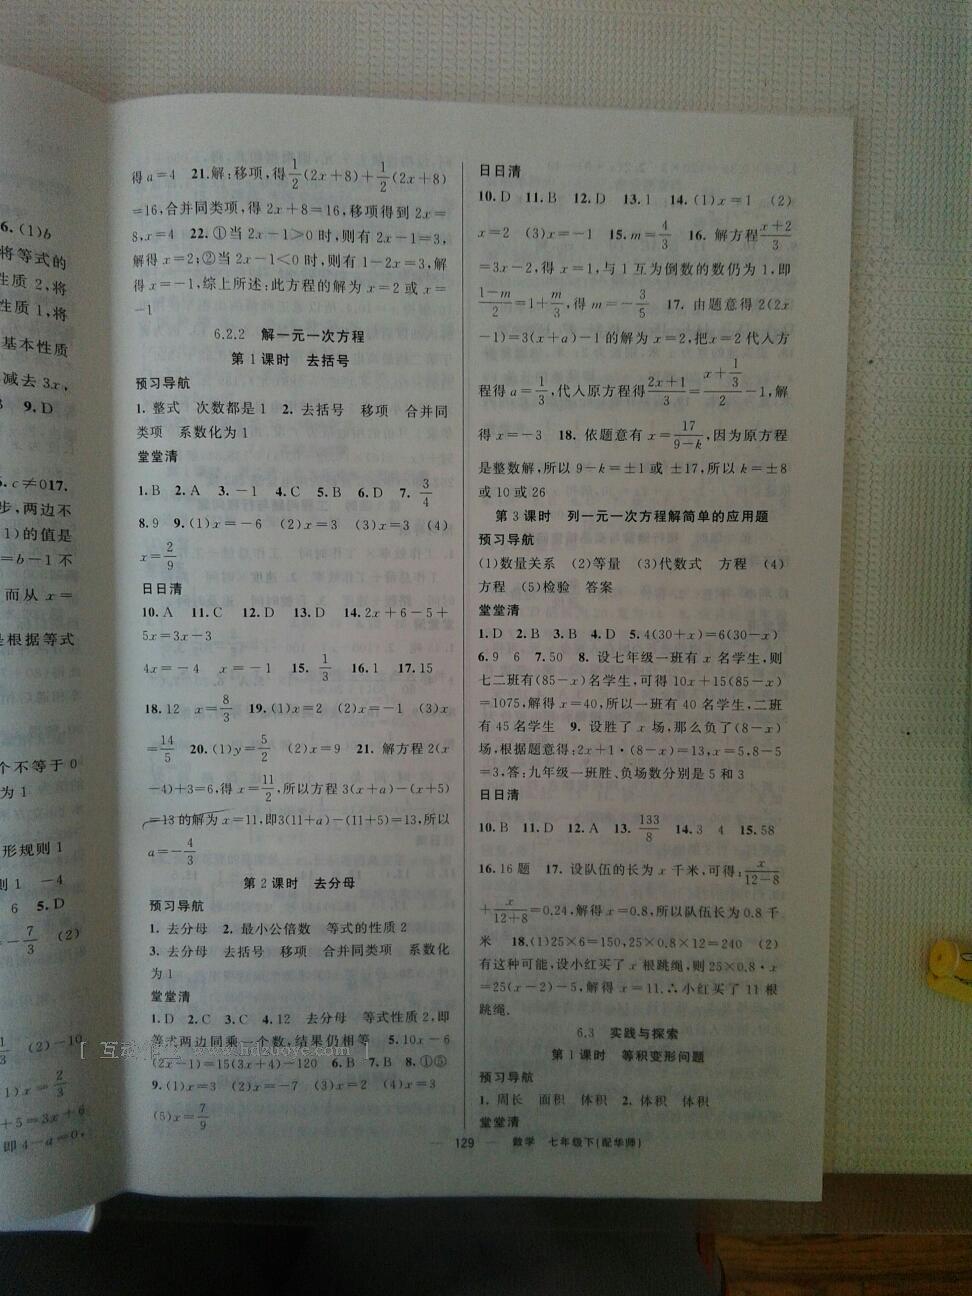 6.(1)b
将等式的
性质 2,将
性质 1,将
基本性质
减去 3x,
9.D
c≠0 17.
步,两边不
1)的值是
=b-1 不
而从 x=
是根据等式
个不等于 0
为 1
形规则 1
则 1 -4
6 5.D
-7/3 (2)
(2)-10
)x=2/3
+5=3x+6
即 4-a=0,
得 a=4 21.解:移项,得1/2(2x+8)+1/2(2x+8)
=16,合并同类项,得 2x+8=16,移项得到 2x=
8,x=4 22.①当 2x-1>0 时,则有 2x-1=3,
解得 x=2;②当 2x-1<0 时,则有 1-2x=3,解
得 x=-1,综上所述:此方程的解为 x=2 或 x=
-1
6.2.2 解一元一次方程
第 1 课时 去括号
预习导航
1. 整式 次数都是 1 2. 去括号 移项 合并同
类项 系数化为 1
堂堂清
1.B 2.A 3.-1 4.C 5.B 6.D 7.3/4
8.9 9.(1)x=-6 (2)x=3 (3)x=3 (4)
x=2/9
日日清
10.A 11.C 12.D 13.D 14.2x+6-5+
5x=3x-3
4x=-4 x=-1 15.1/3 16.1 17.15
18.12 x=8/3 19.(1)x=2 (2)x=-1 (3)x
=14/5 20.(1)y=5/2 (2)x=9 21. 解方程 2(x
-4)+3=6,得 x=11/2,所以方程 3(x+a)-(x+5)
=13 的解为 x=11,即3(11+a)-(11+5)=13,所以
a=-4/3
第 2 课时 去分母
预习导航
1. 去分母 2. 最小公倍数 等式的性质 2
3. 去分母 去括号 移项 合并同类项 系数化
为 1
堂堂清
1.D 2.C 3.C 4.12 去分母 等式性质 2,即
等式两边同乘一个数,结果仍相等 5.10x-6
(2x-1)=15(3x+4)-120 6.B 7.B 8.①⑤
9.(1)x=3 (2)x=-7 (3)x=2 (4)x=3
(5)x=7/9
日日清
10.D 11.B 12.D 13.1 14.(1)x=1 (2)
x=2 (3)x=-1 15.m=4/3 16. 解方程(x+2)/3
=3x-2,得 x=1,与 1 互为倒数的数仍为 1,即
(1-m)/2=1+m/3,得 m=-3/5 17. 由题意得 2(2x
-1)=3(x+a)-1 的解为 x=2,把 x=2 代入方
程得 a=1/3,代入原方程得(2x+1)/3=(x+1/3)/2-1,解
得 x=-3 18. 依题意有 x=17/(9-k),因为原方程
是整数解,所以 9-k=±1 或 ±17,所以 k=±8
或 10 或 26
第 3 课时 列一元一次方程解简单的应用题
预习导航
(1)数量关系 (2)等量 (3)代数式 方程 (4)
方程 (5)检验 答案
堂堂清
1.D 2.B 3.B 4.D 5.4(30+x)=6(30-x)
6.9 6 7.50 8. 设七年级一班有 x 名学生,则
七二班有(85-x)名学生,可得 10x+15(85-x)
=1075,解得 x=40,所以一班有 40 名学生,二班
有 45 名学生 9. 设胜了 x 场,那么负了(8-x)
场,根据题意得:2x+1·(8-x)=13,x=5,8-5
=3,答:九年级一班胜、负场数分别是 5 和 3
日日清
10.B 11.D 12.A 13.133/8 14.3 4 15.58
16.16 题 17. 设队伍的长为 x 千米,可得:x/(12-8)
+x/(12+8)=0.24,解得 x=0.8,所以队伍长为 0.8 千
米 18.(1)25×6=150,25×0.8×12=240 (2)
有这种可能,设小红买了 x 根跳绳,则 25×0.8·x
=25(x-2)-5,解得 x=11.∴小红买了 11 根
跳绳.
6.3 实践与探索
第 1 课时 等积变形问题
预习导航
1. 周长 面积 体积 2. 体积 体积
堂堂清
— 129 — 数学 七年级下(配华师)
www.hdzuoye.com